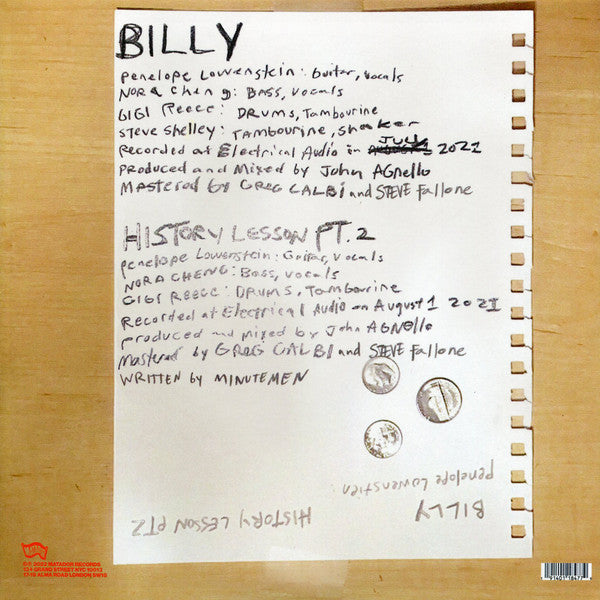 BILLY
Penelope Lowenstein: Guitar, vocals
NORA Cheng: BASS, vocals
GIGI Reece: DRUMS, Tambourine
Steve Shelley: Tambourine, Shaker
JULY
Recorded at Electrical Audio in 2021
Produced and Mixed by John AGnello
Mastered by GREG CALBI and STEVE Fallone
HISTORY LESSON PT.2
Penelope Lowenstein: Guitar, vocals
NORA CHENG: Bass, vocals
GIGI REECE: DRUMS, Tambourine
Recorded at Electrical Audio on August 1 2021
produced and mixed by John AGNello
Mastered by GREG CALBI and STEVE Fallone
WRITTEN by MINUTEMEN
Penelope Lowenstien:
BILLY
HISTORY LESSON PT2
℗© 2022 MATADOR RECORDS
134 GRAND STREET NYC 10013
17-19 ALMA ROAD LONDON SW18